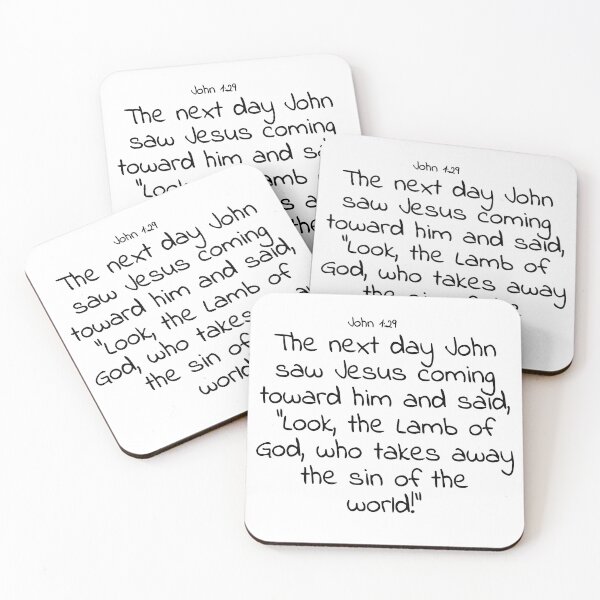 John 1:29
The next day John
saw Jesus coming
toward him and
"Look, the Lamb
John 1:29
The next day John
saw Jesus coming
toward him and said,
"Look, the Lamb of
God, who takes away
the sin of the
John 1:29
The next day John
saw Jesus coming
toward him and said,
"Look, the Lamb of
God, who takes
the sin of
world!
John 1:29
The next day John
saw Jesus coming
toward him and said,
"Look, the Lamb of
God, who takes away
the sin of the
world!"